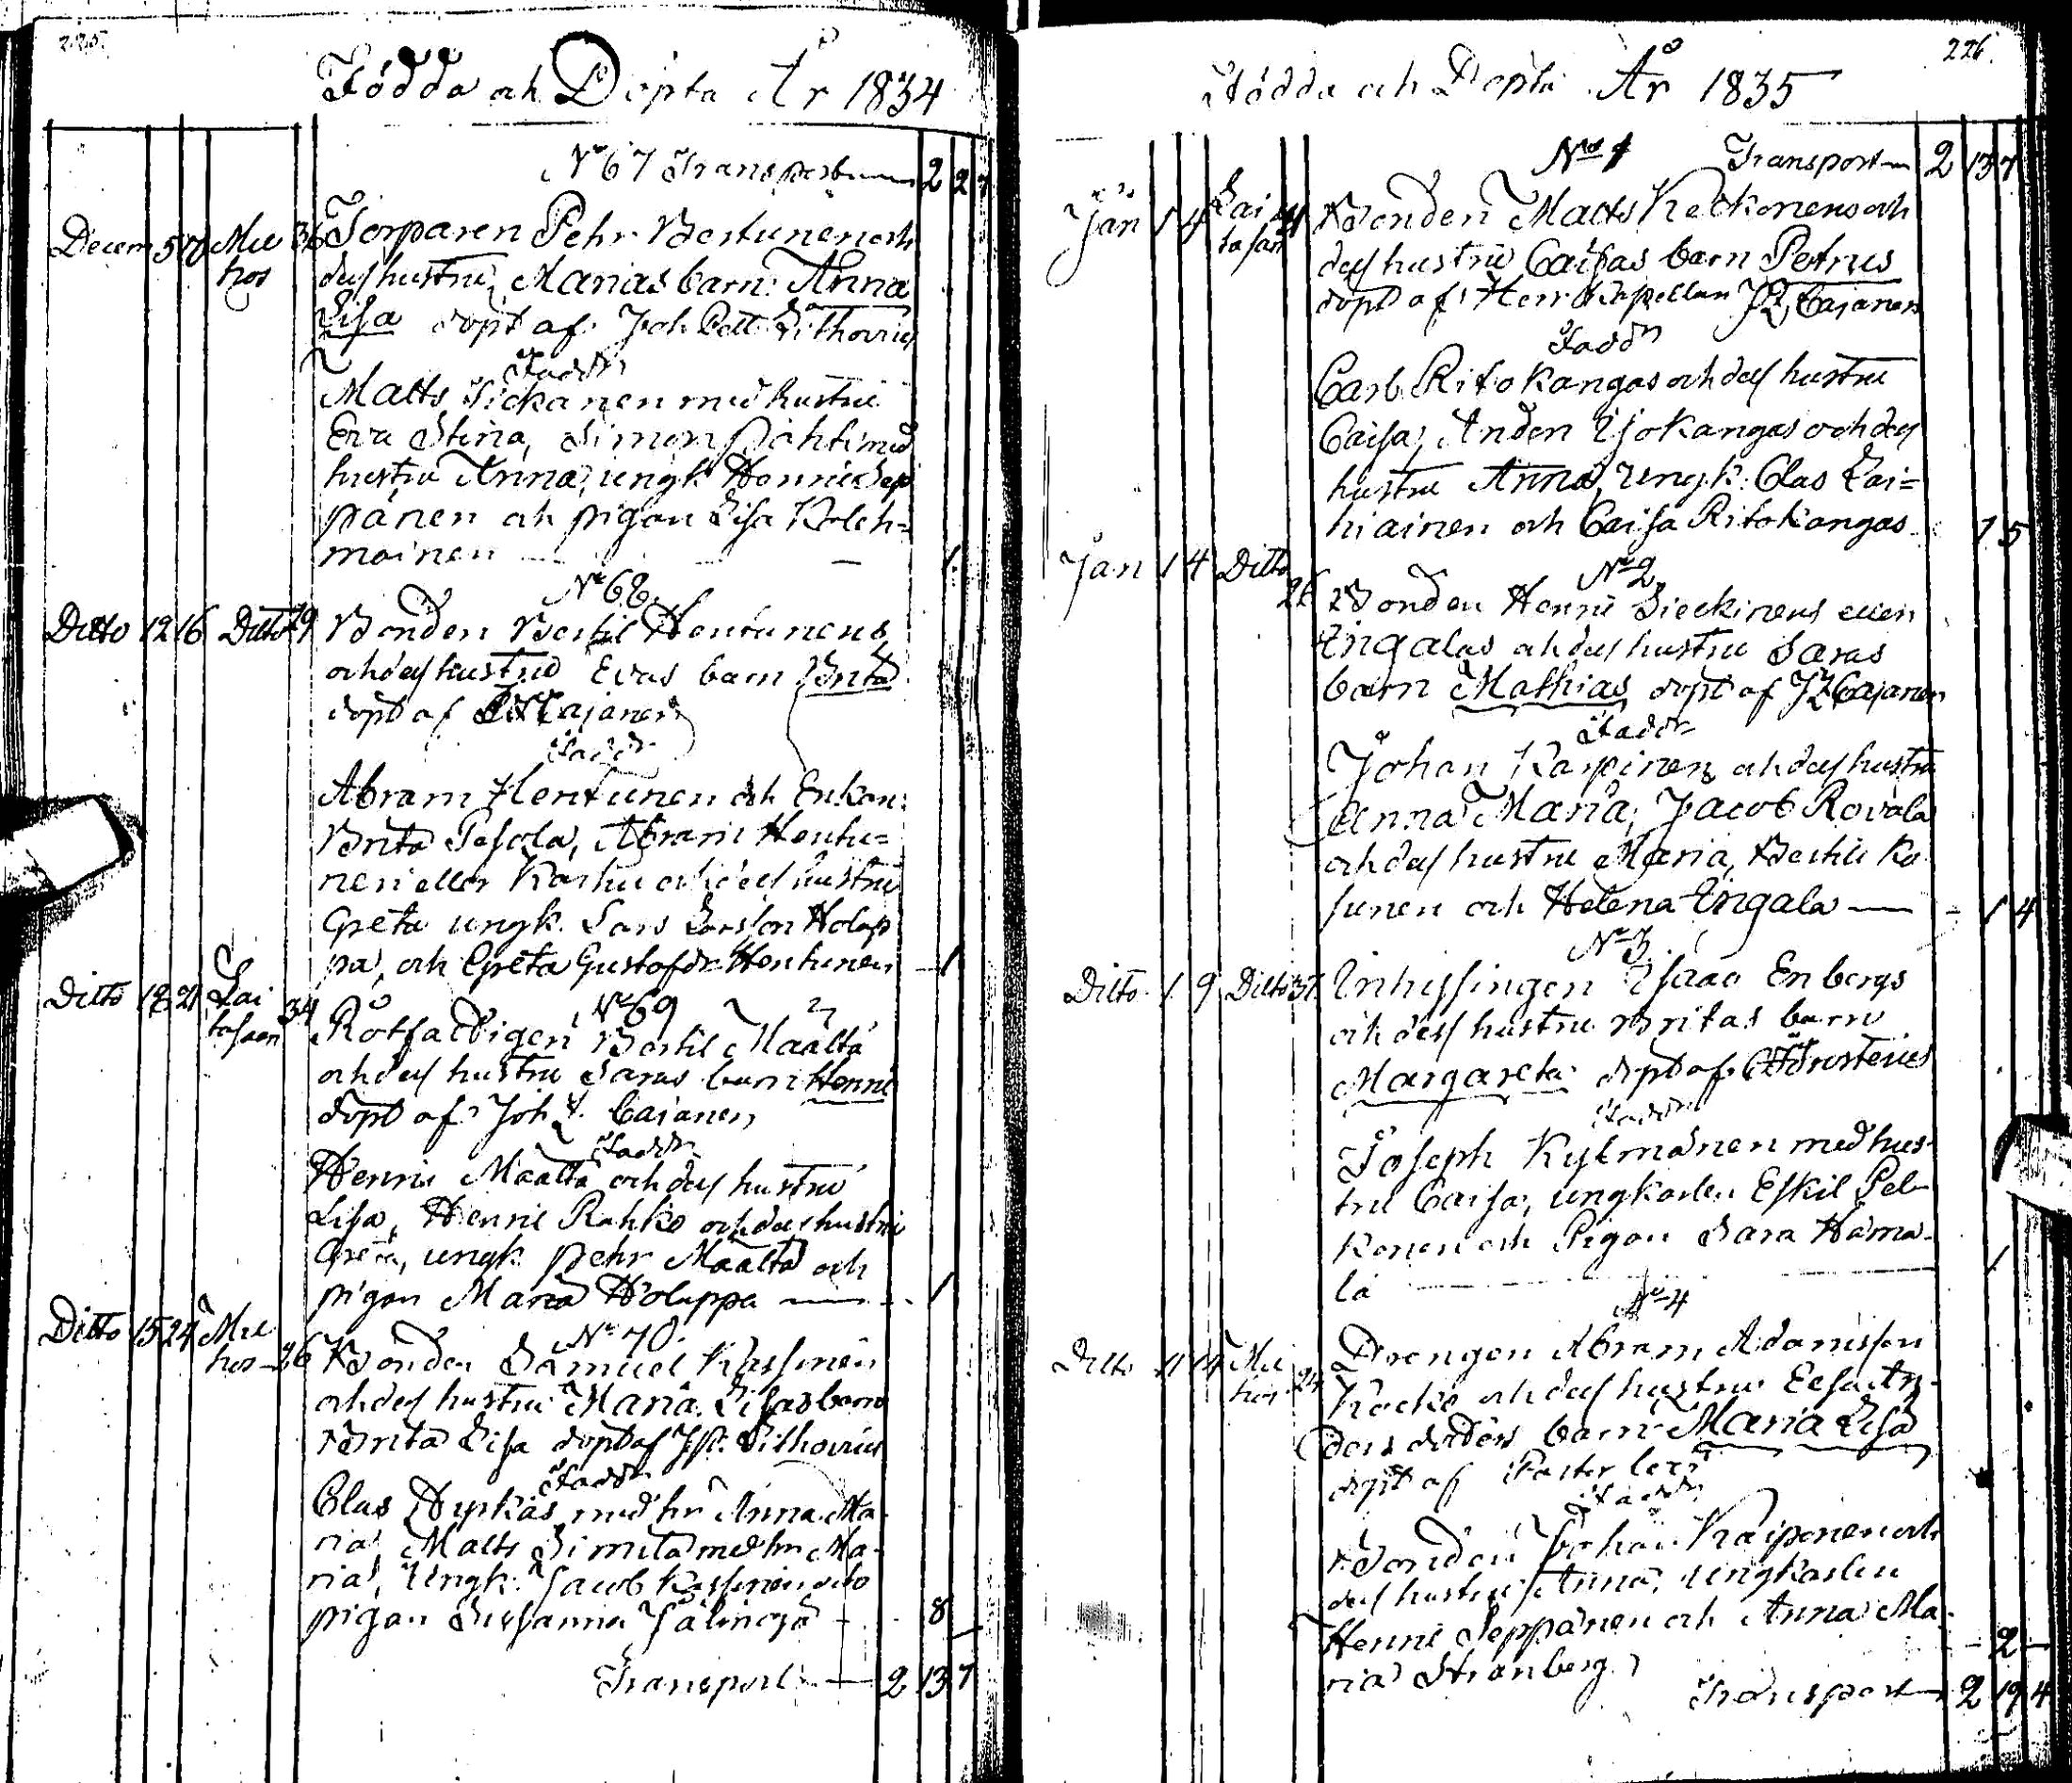 225.
Födda och Döpta År 1834
No 67 Transport 2 2 7
Decem 5 7 Mu 36 Torparen Pehr Bertunen och
hos dess hustru Marias barn: Anna
Lisa döpt af Joh Pett Lithovius
Faddr
Matts Sickanen med hustru
Eva Stina, Simon Pähti med
hustru Anna, ungk. Henric Sep
pänen och pigan Lisa Koleh=
mainen — 1.
No 68.
Ditto 12 16 Ditto 29 Bonden Bertil Hentunens
och dess hustru Evas barn Brita
döpt af Cajanen
Faddr
Abram Hentunen och Enkan
Brita Pesola, Abram Hentu=
nen eller Karhu och dess hustru
Greta ungk. Lars Larsson Holap
pa, och Greta Gustafdr Hentunen — 1
No 69
Ditto 18 21 Lai 34 Rotfattigen Bertil Määttä
tasaari och dess hustru Saras barn Henric
döpt af Joh Z. Cajanen
Faddr
Henric Määttä och dess hustru
Lisa, Henric Rahko och dess hustru
Greta, ungk. Pehr Määttä och
pigan Maria Holappa — 1
No 70.
Ditto 15 24 Mu
hos 26 Bonden Samuel Kassinen
och dess hustru Maria Lisas barn
Brita Lisa döpt af J.P. Lithovius
Faddr
Clas Hyrkäs med hu Anna Ma
ria, Matts Simita med hu Ma-
ria, Ungk. Jacob Kassinen och
pigan Susanna — 8
Transport — 2 13 7
226.
Födda och Döpta År 1835
No 1 Transport 2 13 7
Jan 1 4 Lai Bonden Matts Keckonens och
tasari dess hustru Caisas barn Petrus
döpt af Herr Kapellan J Z Cajanen
Faddr
Carl Ritokangas och dess hustru
Caisa, Anders Ijokangas och dess
hustru Anna, Ungk. Clas Lai=
hiainen och Caisa Ritokangas 1 5
No 2
Jan 1 4 Ditto 26 Bonden Henric Sieckinens eller
Engalas och dess hustru Saras
barn Mathias döpt af J Z Cajanen
Faddr
Johan Karpinen och dess hustru
Anna Maria, Jacob Rovala
och dess hustru Maria, Bertil Ko
sunen och Helena Engala — 1 4
No 3
Ditto 1 9 Ditto 37 Inhysingen Isaac Enbergs
och dess hustru Britas barn
Margareta döpt af Frosterus
Faddr
Joseph Kylmänen med hus
tru Caisa, ungkarlen Eskil Pel
konen och Pigan Sara Hämä-
lä 1
No 4
Ditto 11 14 Mu Drengen Abram Adamsson
hos 24 Kocko och dess hustru Eeva An-
ders dotters barn Maria Lisa
döpt af Pastor
Faddr
Bonden Johan Kaiponen och
dess hustru Anna, Ungkarlen
Henric Seppänen och Anna Ma-
ria Stranberg. 2 —
Transport 2 19 4